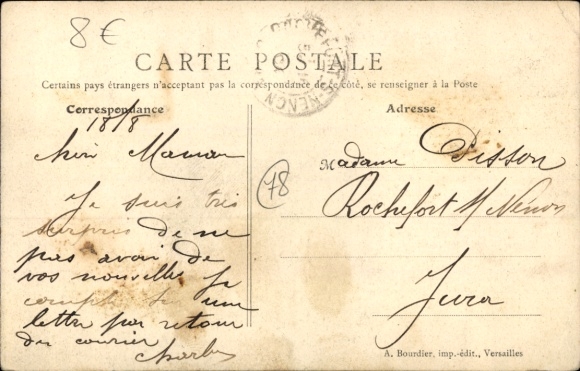 8 €
CARTE POSTALE
Certains pays étrangers n'acceptant pas la correspondance de ce côté, se renseigner à la Poste
Correspondance
18/8
Chère Maman
Je suis très
surpris de ne
pas avoir de
vos nouvelles je
compte sur une
lettre par retour
du courier
Charles
78
Adresse
Madame Pisson
Rochefort s/ Nenon
Jura
A. Bourdier, imp.-édit., Versailles